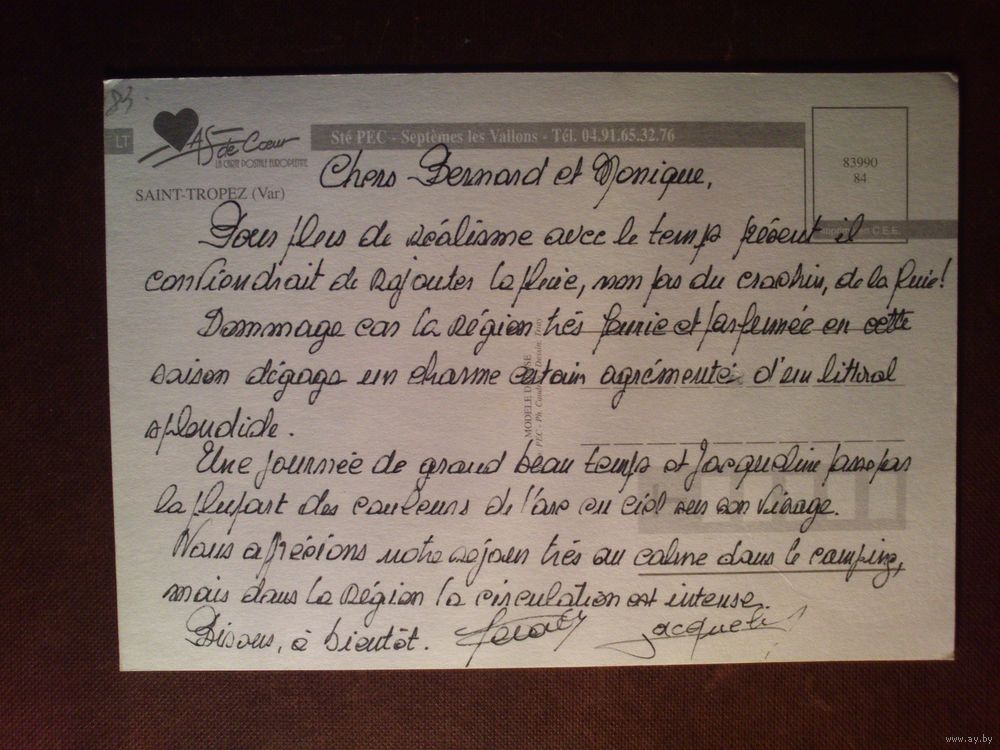 83.
LT
AS de Cœur
LA CARTE POSTALE EUROPEENNE
Sté PEC - Septèmes les Vallons - Tél. 04.91.65.32.76
SAINT-TROPEZ (Var)
83990
84
Imprimé en C.E.E.
Chers Bernard et Monique,
Pour plus de réalisme avec le temps présent il
conviendrait de rajouter la pluie, non pas du crachin, de la pluie!
Dommage car la région très fleurie et parfumée en cette
saison dégage un charme certain agrémenté d'un littoral
splendide.
Une journée de grand beau temps et Jacqueline passe par
la plupart des couleurs de l'arc en ciel sur son visage.
Nous apprécions notre séjour très au calme dans le camping,
mais dans la région la circulation est intense.
Bisous, à bientôt.
MODELE
PEC - Ph.
www.ay.by